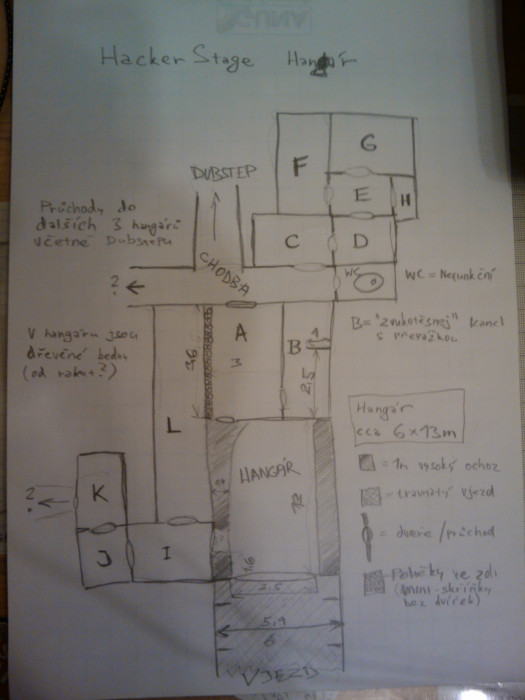 Hacker Stage Hangár
G
F
DUBSTEP
E
H
Průchody do
dalších 3 hangárů
včetně Dubstepu
C
D
CHODBA
WC
WC = Nefunkční
?
A
3
B
1
B= "zvukotěsnej" kancl
s přepážkou
V hangáru jsou
dřevěné bedny
(od raket?)
2,5
L
Hangár
cca 6x13m
HANGÁR
= 1m vysoký ochoz
K
?
12
= travnatý vjezd
= dveře/průchod
J
I
1,6
= Poličky ve zdi
(mini-skříňky
bez dvířek)
5,9
6
VJEZD